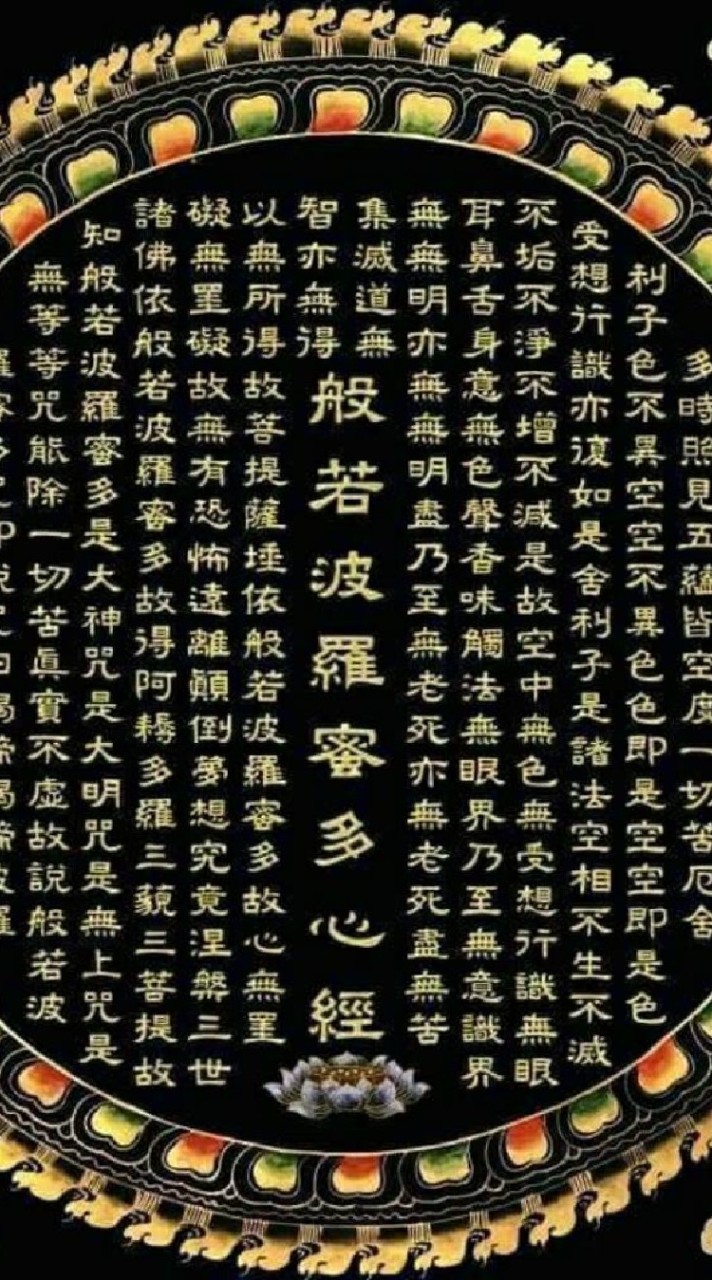 多時照見五蘊皆空度一切苦厄舍
利子色不異空空不異色色即是空空即是色
受想行識亦復如是舍利子是諸法空相不生不滅
不垢不淨不增不減是故空中無色無受想行識無眼
耳鼻舌身意無色聲香味觸法無眼界乃至無意識界
無無明亦無無明盡乃至無老死亦無老死盡無苦
集滅道無
智亦無得
般若波羅蜜多心經
以無所得故菩提薩埵依般若波羅蜜多故心無罣
礙無罣礙故無有恐怖遠離顛倒夢想究竟涅槃三世
諸佛依般若波羅蜜多故得阿耨多羅三藐三菩提故
知般若波羅蜜多是大神咒是大明咒是無上咒是
無等等咒能除一切苦眞實不虛故說般若波